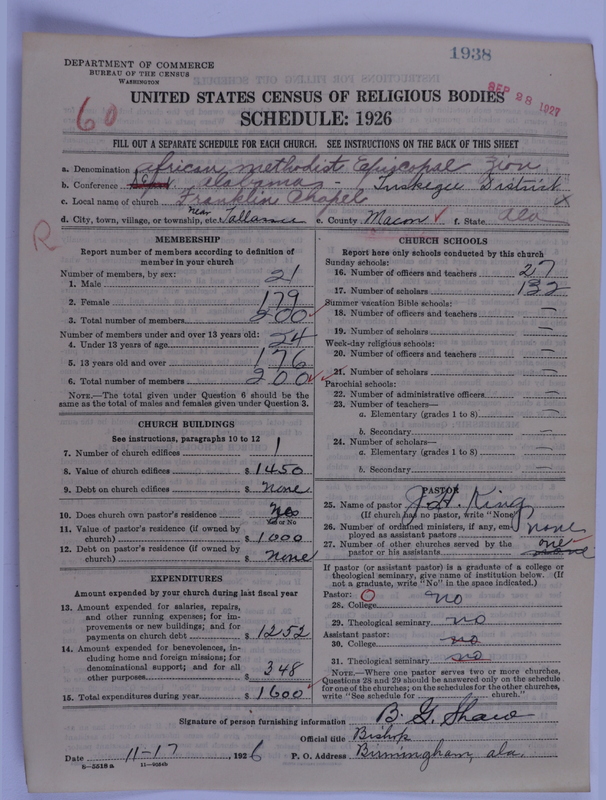 1938
DEPARTMENT OF COMMERCE
BUREAU OF THE CENSUS
WASHINGTON
SEP 28 1927
60
UNITED STATES CENSUS OF RELIGIOUS BODIES
SCHEDULE: 1926
FILL OUT A SEPARATE SCHEDULE FOR EACH CHURCH. SEE INSTRUCTIONS ON THE BACK OF THIS SHEET
a. Denomination African Methodist Episcopal Zion
b. Conference Alabama - Tuskegee District
c. Local name of church Franklin Chapel x
d. City, town, village, or township, etc. near Tallassee e. County Macon ✓ f. State Ala
R
MEMBERSHIP
Report number of members according to definition of
member in your church
Number of members, by sex:
1. Male 21
2. Female 179
3. Total number of members 200
Number of members under and over 13 years old:
4. Under 13 years of age 24
5. 13 years old and over 176
6. Total number of members 200
NOTE.—The total given under Question 6 should be the
same as the total of males and females given under Question 3.
CHURCH BUILDINGS
See instructions, paragraphs 10 to 12
7. Number of church edifices 1
8. Value of church edifices $ 1450
9. Debt on church edifices $ None
10. Does church own pastor's residence? Yes
Yes or No
11. Value of pastor's residence (if owned by
church) $ 1000
12. Debt on pastor's residence (if owned by
church) $ None
EXPENDITURES
Amount expended by your church during last fiscal year
13. Amount expended for salaries, repairs,
and other running expenses; for im-
provements or new buildings; and for
payments on church debt $ 1252
14. Amount expended for benevolences, in-
cluding home and foreign missions; for
denominational support; and for all
other purposes $ 348
15. Total expenditures during year $ 1600
CHURCH SCHOOLS
Report here only schools conducted by this church
Sunday schools:
16. Number of officers and teachers 27
17. Number of scholars 132
Summer vacation Bible schools:
18. Number of officers and teachers —
19. Number of scholars —
Week-day religious schools:
20. Number of officers and teachers —
21. Number of scholars —
Parochial schools:
22. Number of administrative officers —
23. Number of teachers—
a. Elementary (grades 1 to 8) —
b. Secondary —
24. Number of scholars—
a. Elementary (grades 1 to 8) —
b. Secondary —
PASTOR
25. Name of pastor J. H. King
(If church has no pastor, write "None")
26. Number of ordained ministers, if any, em-
ployed as assistant pastors none
27. Number of other churches served by the
pastor or his assistants one none
If pastor (or assistant pastor) is a graduate of a college or
theological seminary, give name of institution below. (If
not a graduate, write "No" in the space indicated.)
Pastor: O
28. College no
29. Theological seminary no
Assistant pastor:
30. College no
31. Theological seminary no
NOTE.—Where one pastor serves two or more churches,
Questions 28 and 29 should be answered only on the schedule
for one of the churches; on the schedules for the other churches,
write "See schedule for church."
Signature of person furnishing information B. G. Shaw
Official title Bishop
Date 11-17, 1926 P. O. Address Birmingham, Ala.